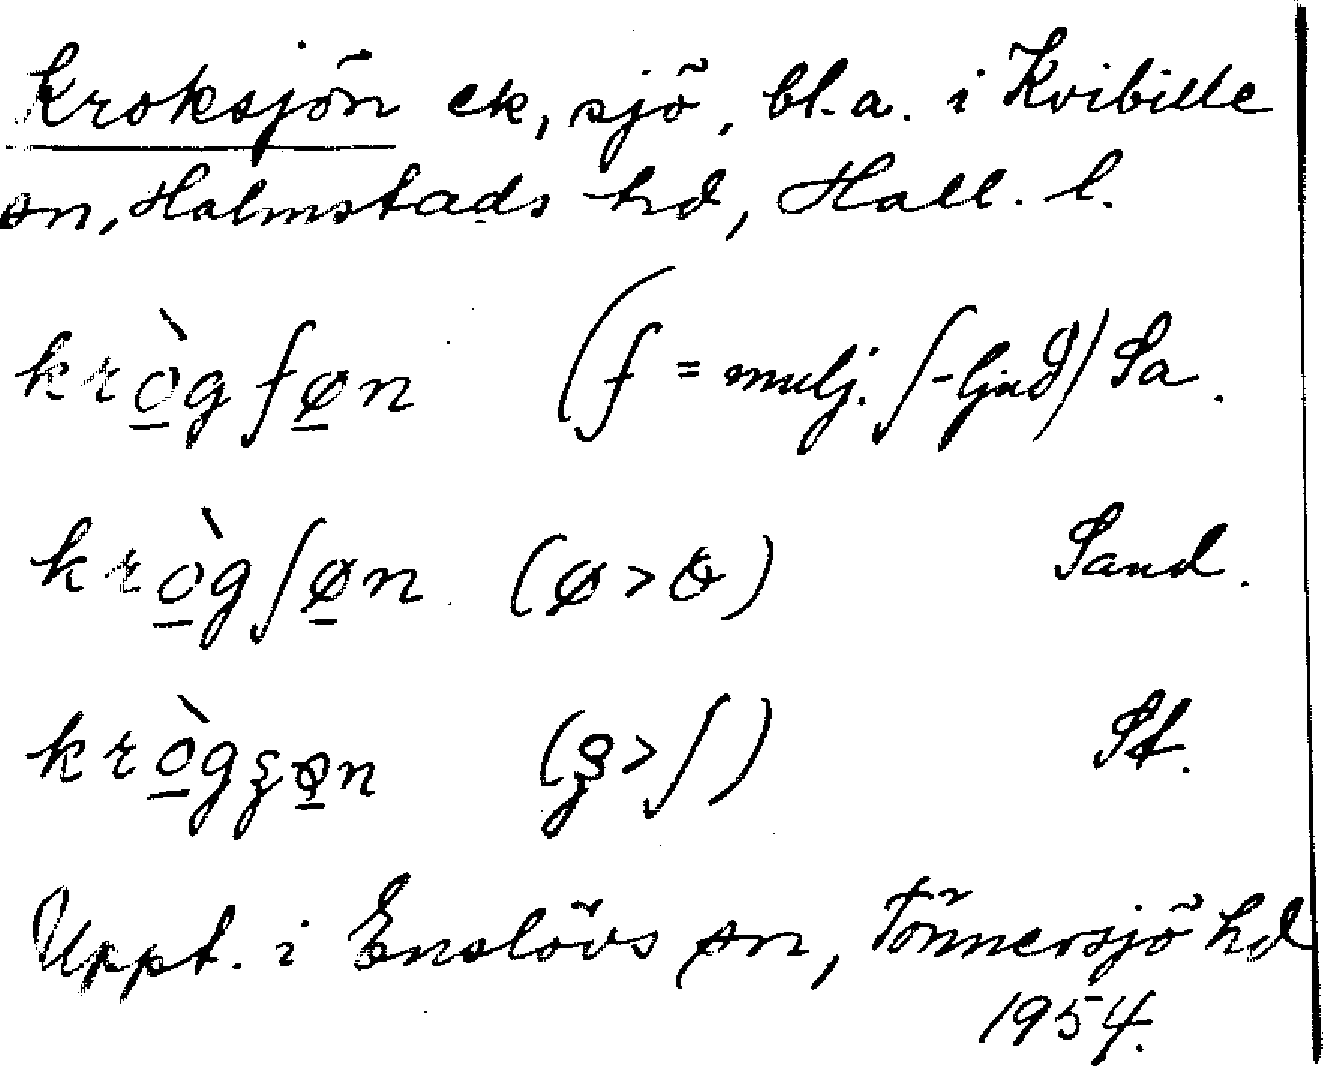 Kroksjön ek, sjö, bl.a. i Kvibille
sn, Halmstads hd, Hall. l.
krò̲gʄø̲n (ʄ = mulj. ʃ-ljud) Sa.
krò̲gʃø̲n (ø > ɵ) Sand.
krò̲gʒø̲n (ʒ > ʃ) St.
Uppt. i Enslövs sn, Tönnersjö hd
1954.